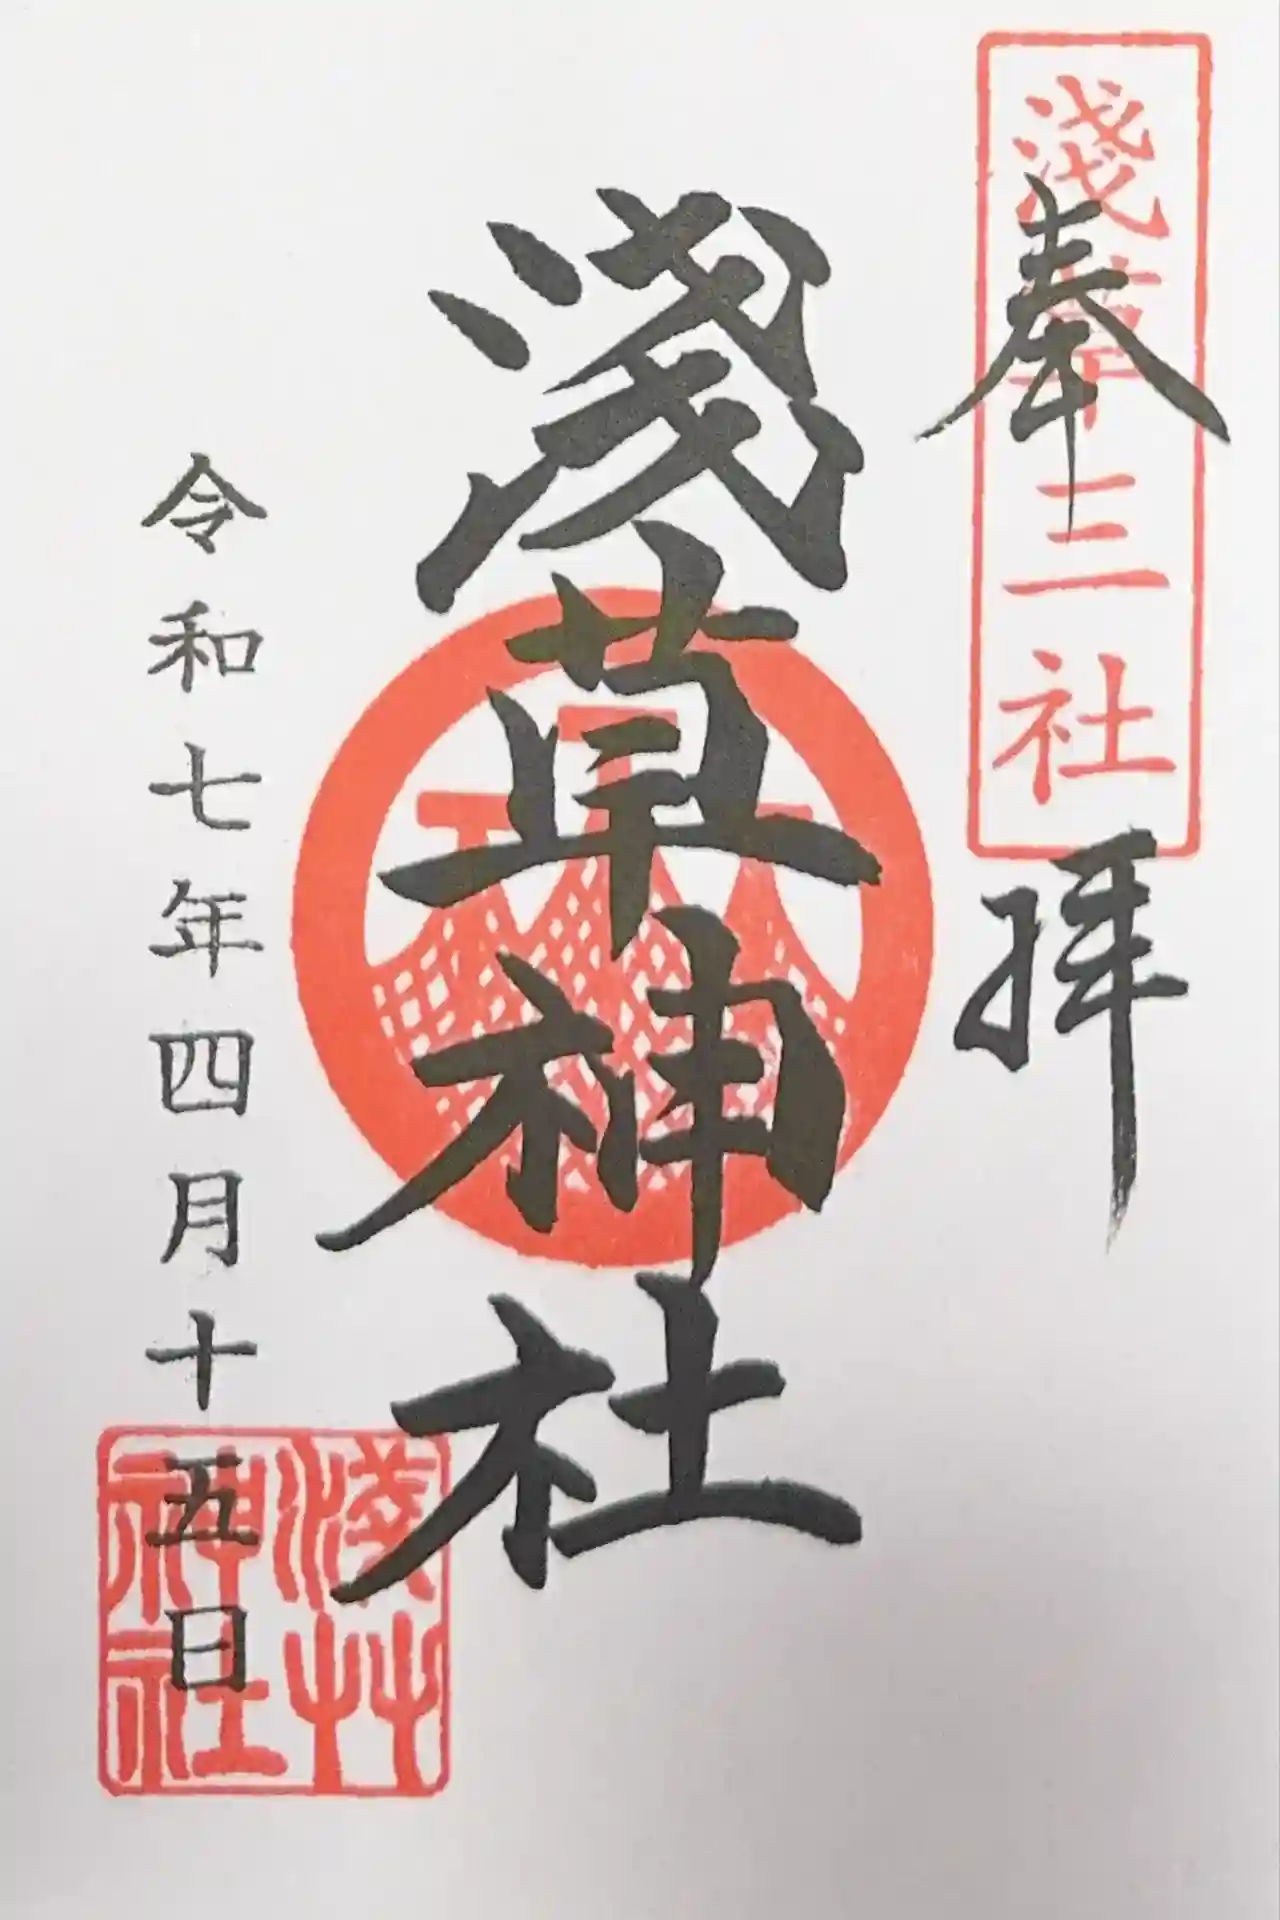 奉拝
淺草三社
淺草神社
令和七年四月十五日
淺草神社